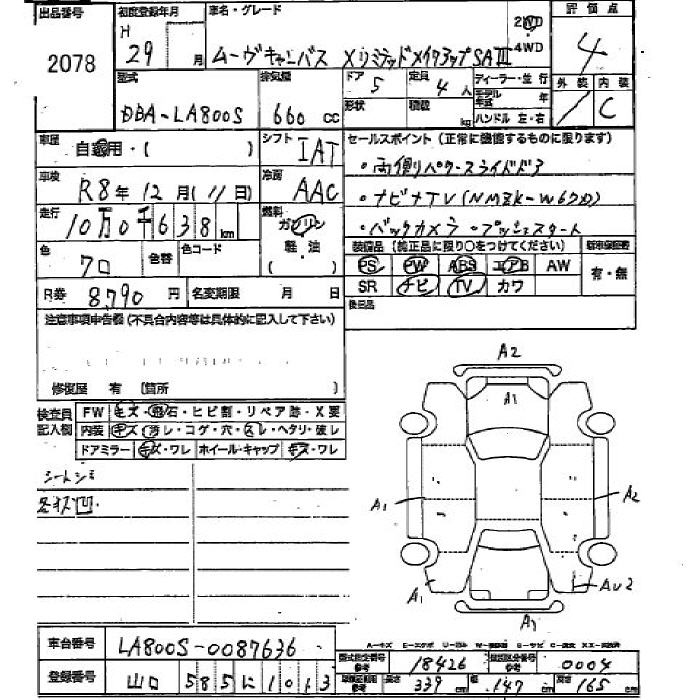 出品番号 初度登録年月 車名・グレード 評価点
2078 H 29 月 ムーヴキャンバス XリミテッドメイクアップSAⅢ 2WD 4WD 4
型式 排気量 ドア 定員 ディーラー・並行 外装 内装
DBA-LA800S 660 cc 5 4人 モデル年式 年 C
形状 積載 kg ハンドル 左・右
車歴 自家用・( ) シフト IAT セールスポイント (正常に機能するものに限ります)
・両側パワースライドドア
車検 R8年12月(11日) 冷房 AAC ・ナビナTV(NMZK-W67D)
走行 10万0千638km 燃料 ガソリン ・バックカメラ・プッシュスタート
軽・油
( )
色 クロ 色替 色コード 装備品 (純正品に限り○をつけてください) 新車保証書
PS PW ABS エアB AW 有・無
SR ナビ TV カワ
R券 8,790 円 名変期限 月 日 後日品
注意事項申告欄 (不具合内容等は具体的に記入して下さい)
修復歴 有 (箇所 )
検査員記入欄 FW キズ・飛石・ヒビ割・リペア跡・X要
内装 キズ・汚レ・コゲ・穴・スレ・ヘタリ・破レ
ドアミラー キズ・ワレ ホイール・キャップ キズ・ワレ
シートシミ
各キズ凹
A2
A1
A1 A2
A1 AU2
A1
車台番号 LA800S-0087636
登録番号 山口 585に1013
型式指定番号 18426 類別区分番号 0004
長さ 339 cm 幅 147 cm 高さ 165 cm